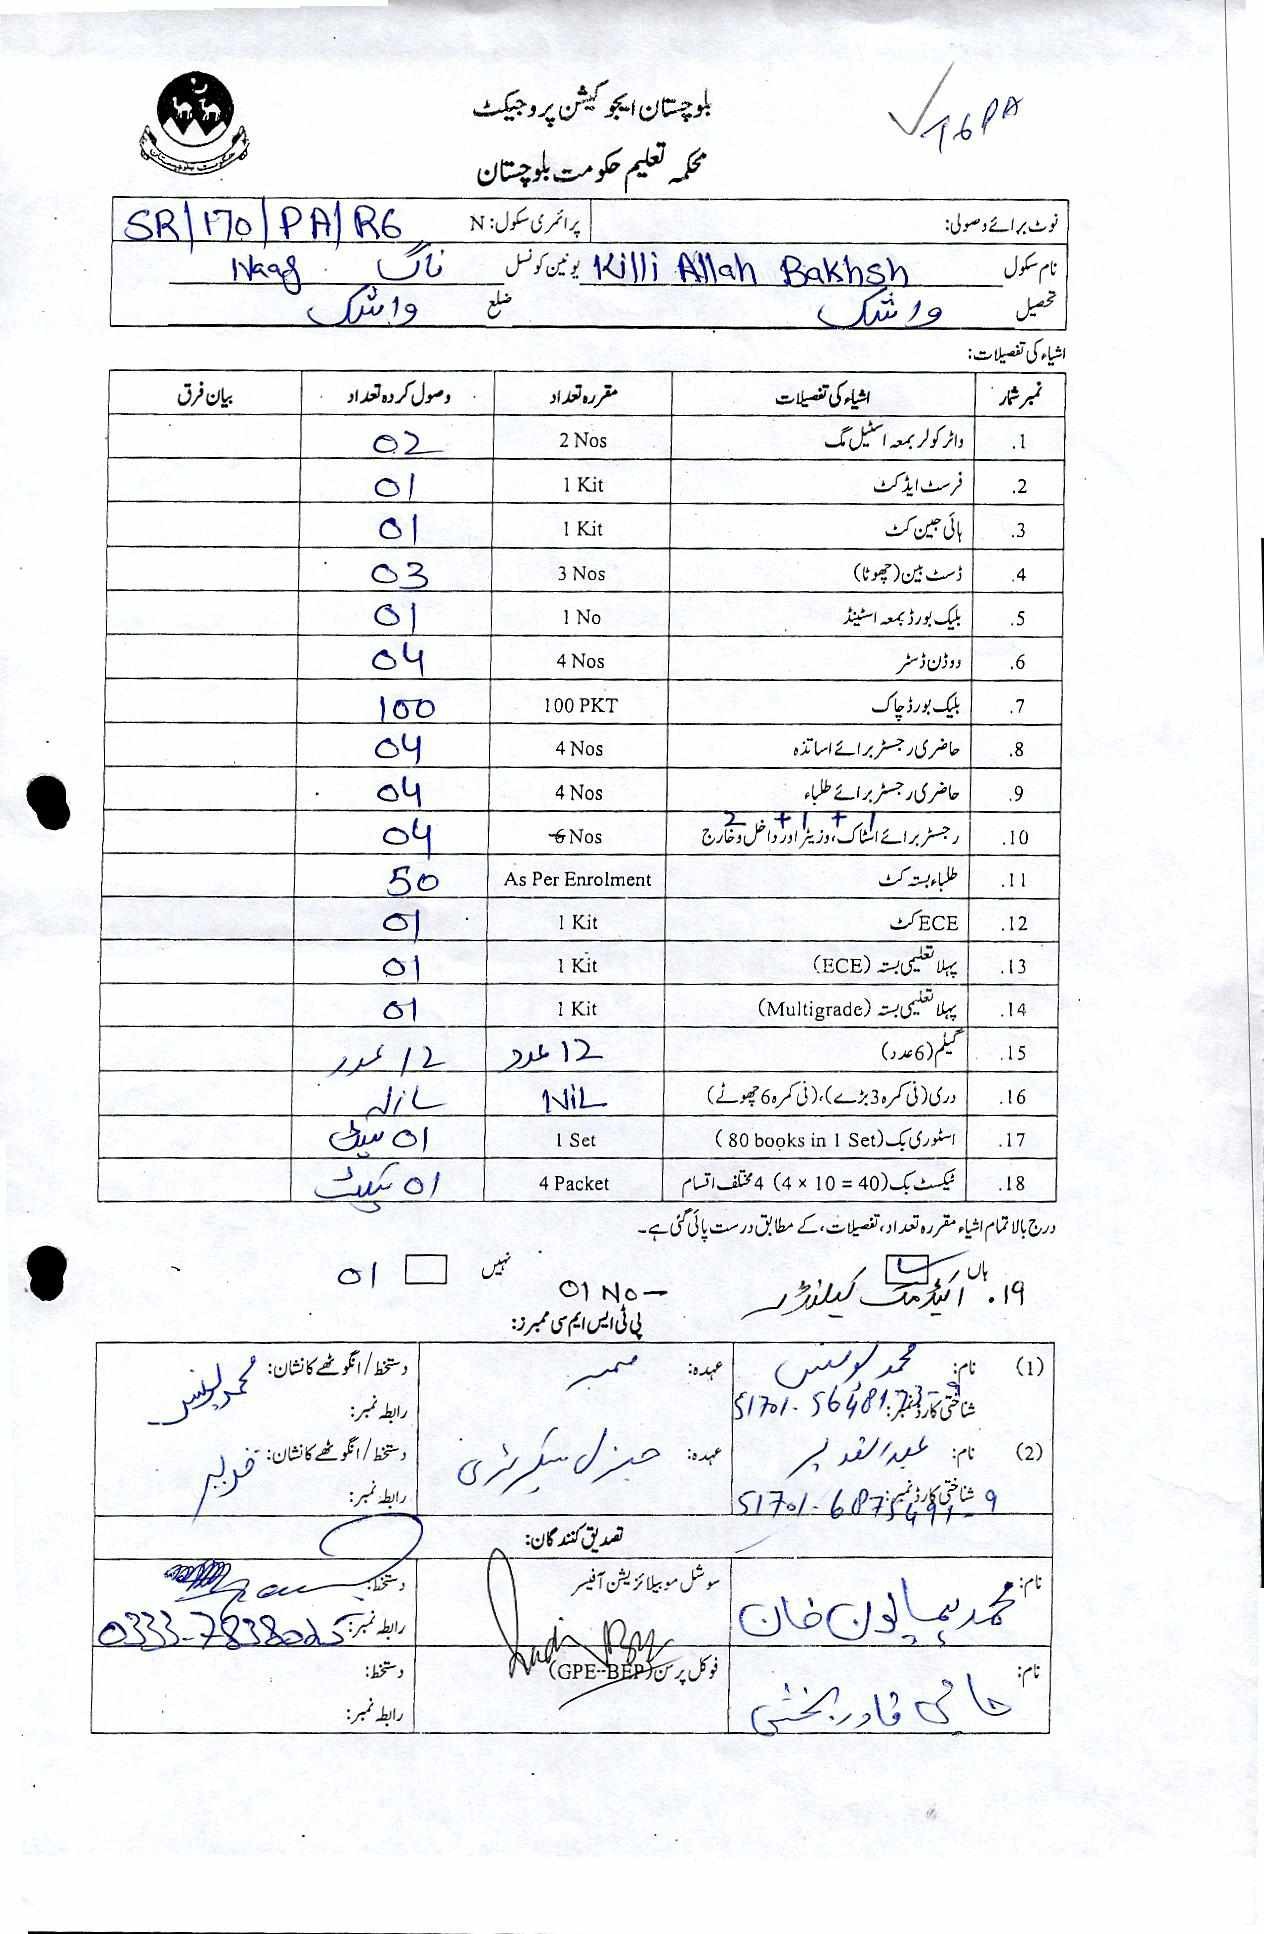 بلوچستان ایجوکیشن پروجیکٹ
محکمہ تعلیم حکومت بلوچستان
حکومت بلوچستان
نوٹ برائے وصولی: پرائمری سکول: N SR/170/PA/R6
نام سکول Killi Allah Bakhsh یونین کونسل ناگ Naag
تحصیل واشک ضلع واشک
اشیاء کی تفصیلات:
نمبر شمار اشیاء کی تفصیلات مقررہ تعداد وصول کردہ تعداد بیان فرق
1. واٹر کولر بمعہ اسٹیل مگ 2 Nos 02
2. فرسٹ ایڈ کٹ 1 Kit 01
3. ہائی جین کٹ 1 Kit 01
4. ڈسٹ بین (چھوٹا) 3 Nos 03
5. بلیک بورڈ بمعہ اسٹینڈ 1 No 01
6. ووڈن ڈسٹر 4 Nos 04
7. بلیک بورڈ چاک 100 PKT 100
8. حاضری رجسٹر برائے اساتذہ 4 Nos 04
9. حاضری رجسٹر برائے طلباء 4 Nos 04
2 + 1 + 1
10. رجسٹر برائے اسٹاک، وزیٹر اور داخل وخارج 6 Nos 04
11. طلباء بستہ کٹ As Per Enrolment 50
12. ECE کٹ 1 Kit 01
13. پہلا تعلیمی بستہ (ECE) 1 Kit 01
14. پہلا تعلیمی بستہ (Multigrade) 1 Kit 01
15. گیلم (6 عدد) 12 عدد 12 عدد
16. دری (فی کمرہ 3 بڑے)، (فی کمرہ 6 چھوٹے) NIL
17. اسٹوری بک (80 books in 1 Set) 1 Set 01 سیٹ
18. ٹیکسٹ بک (4 × 10 = 40) 4 مختلف اقسام 4 Packet 01
درج بالا تمام اشیاء مقررہ تعداد، تفصیلات، کے مطابق درست پائی گئی ہے۔
ہاں نہیں
19. اکیڈمک کیلنڈر 01 No 01
پی ٹی ایس ایم سی ممبرز:
(1) نام: محمد یونس عہدہ: ممبر دستخط/انگوٹھے کا نشان: محمد یونس
شناختی کارڈ نمبر: رابطہ نمبر:
(2) نام: عبدالقدیر عہدہ: جنرل سیکریٹری دستخط/انگوٹھے کا نشان: قدیر
شناختی کارڈ نمبر: 51701-6875491-9 رابطہ نمبر:
تصدیق کنندگان:
نام: محمد ہمایون خان سوشل موبیلائزیشن آفیسر دستخط:
رابطہ نمبر: 0333-7838025
نام: حاجی قادر بخش فوکل پرسن (GPE-BEP) دستخط:
رابطہ نمبر: